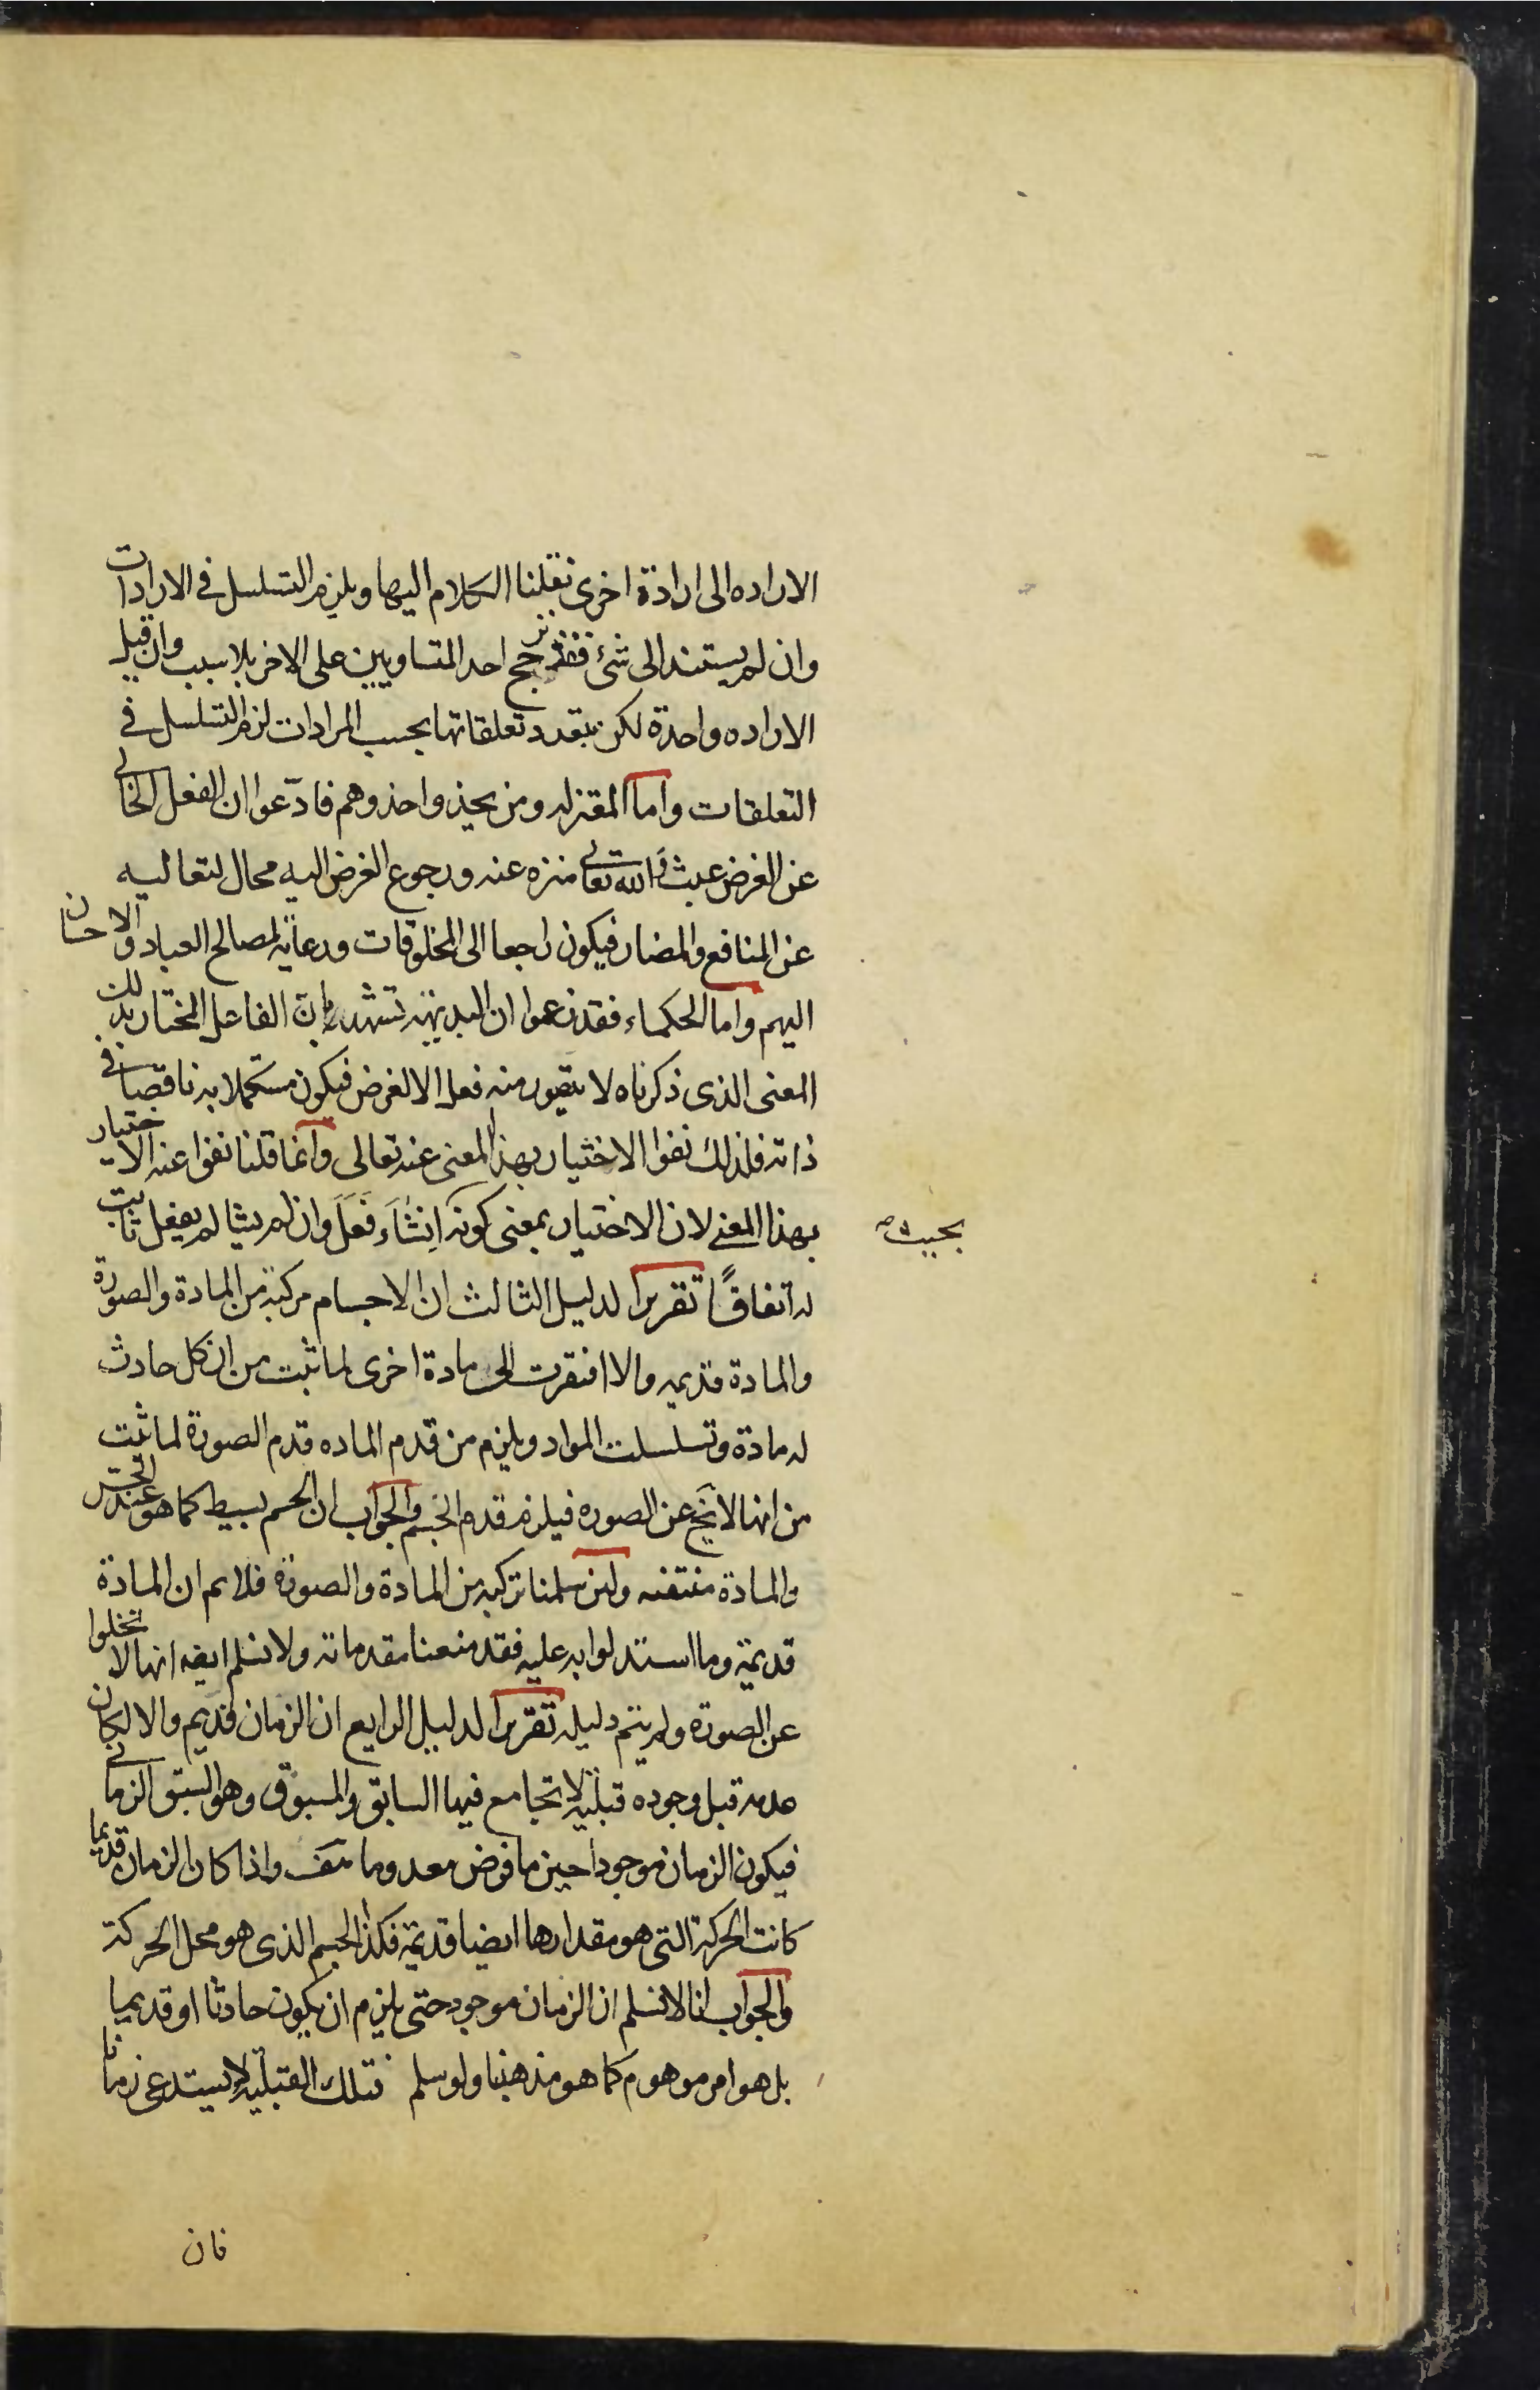 الاراده الى ارادة اخرى نقلنا الكلام اليها ويلزم التسلسل فى الارادات
وان لم يستند الى شئ فقد ترجح احد المتساويين على الاخر بلا سبب وان قيل
الاراده واحدة لكن يتعدد تعلقاتها بحسب المرادات لزم التسلسل فى
التعلقات واما المعتزله ومن يحذو احذوهم فادّعوا ان الفعل الخالى
عن الغرض عبث والله تعالى منزه عنه ورجوع الغرض اليه محال لتعاليه
عن المنافع والمضار فيكون راجعا الى المخلوقات ورعاية لمصالح العباد والاحسان
اليهم واما الحكماء فقد زعموا ان البديهة تشهد بان الفاعل المختار بذلك
المعنى الذى ذكرناه لا يتصور منه فعل الا لغرض فيكون مستكملا به ناقصا فى
ذاته فلذلك نفوا الاختيار بهذا المعنى عنه تعالى وانما قلنا نفوا عنه الاختيار
بهذا المعنى لان الاختيار بمعنى كونه اِنشَاءَ فَعَلَ وان لم يشا لم يفعل ثابت
بحيث صح
له اتفاقًا تقرير الدليل الثالث ان الاجسام مركبة من المادة والصورة
والمادة قديمه والا افتقرت الى مادة اخرى لما ثبت من ان كل حادث
له مادة وتسلسلت المواد ويلزم من قدم الماده قدم الصورة لما ثبت
من انها لا تخ عن الصوره فيلزم قدم الجسم والجواب ان الجسم بسيط كما هو عند
والمادة منتفيه ولئن سلمنا تركبه من المادة والصورة فلا نم ان المادة
قديمة وما استدلوا به عليه فقد منعنا مقدماته ولا نسلم ايضه انها لا تخلوا
عن الصورة ولم يتم دليله تقرير الدليل الرابع ان الزمان قديم والا لكان
عدمه قبل وجوده قبلية لا تجامع فيها السابق والمسبوق وهو السبق الزمانى
فيكون الزمان موجودا حين ما فرض معدوما هف واذا كان الزمان قديما
كانت الحركة التى هو مقدارها ايضا قديمة فكذا الجسم الذى هو محل الحركة
والجواب انا لا نسلم ان الزمان موجود حتى يلزم ان يكون حادثا او قديما
بل هو امر موهوم كما هو مذهبنا ولو سلم فتلك القبلية لا يستدعى زمانا
فان